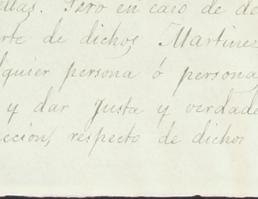 ellas. Pero en caso de de
rte de dichos Martinez
lquier persona ó persona
y dar justa y verdade
ección, respecto de dichos